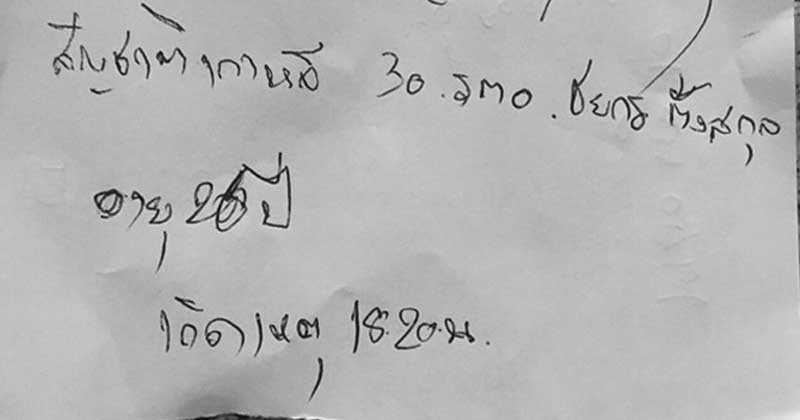 สัญชาติเกาหลี 30. รตอ. ชยกร ตั้งสกุล
อายุ 26 ปี
เกิดเหตุ 18.20 น.